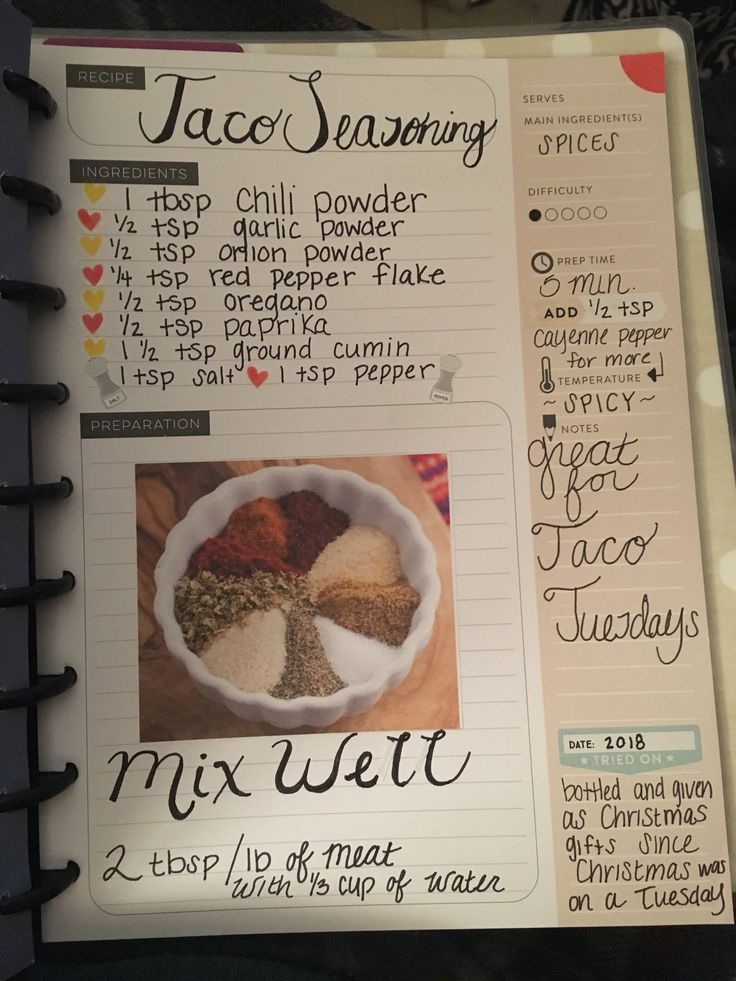 RECIPE
Taco Seasoning
INGREDIENTS
1 tbsp chili powder
1/2 tsp garlic powder
1/2 tsp onion powder
1/4 tsp red pepper flake
1/2 tsp oregano
1/2 tsp paprika
1 1/2 tsp ground cumin
1 tsp salt 1 tsp pepper
SALT
PEPPER
PREPARATION
Mix Well
2 tbsp/lb of meat
with 1/3 cup of water
SERVES
MAIN INGREDIENT(S)
SPICES
DIFFICULTY
PREP TIME
5 min.
ADD 1/2 tsp
cayenne pepper
for more
TEMPERATURE
~ SPICY ~
NOTES
great
for
Taco
Tuesdays
DATE: 2018
TRIED ON
bottled and given
as Christmas
gifts since
Christmas was
on a Tuesday